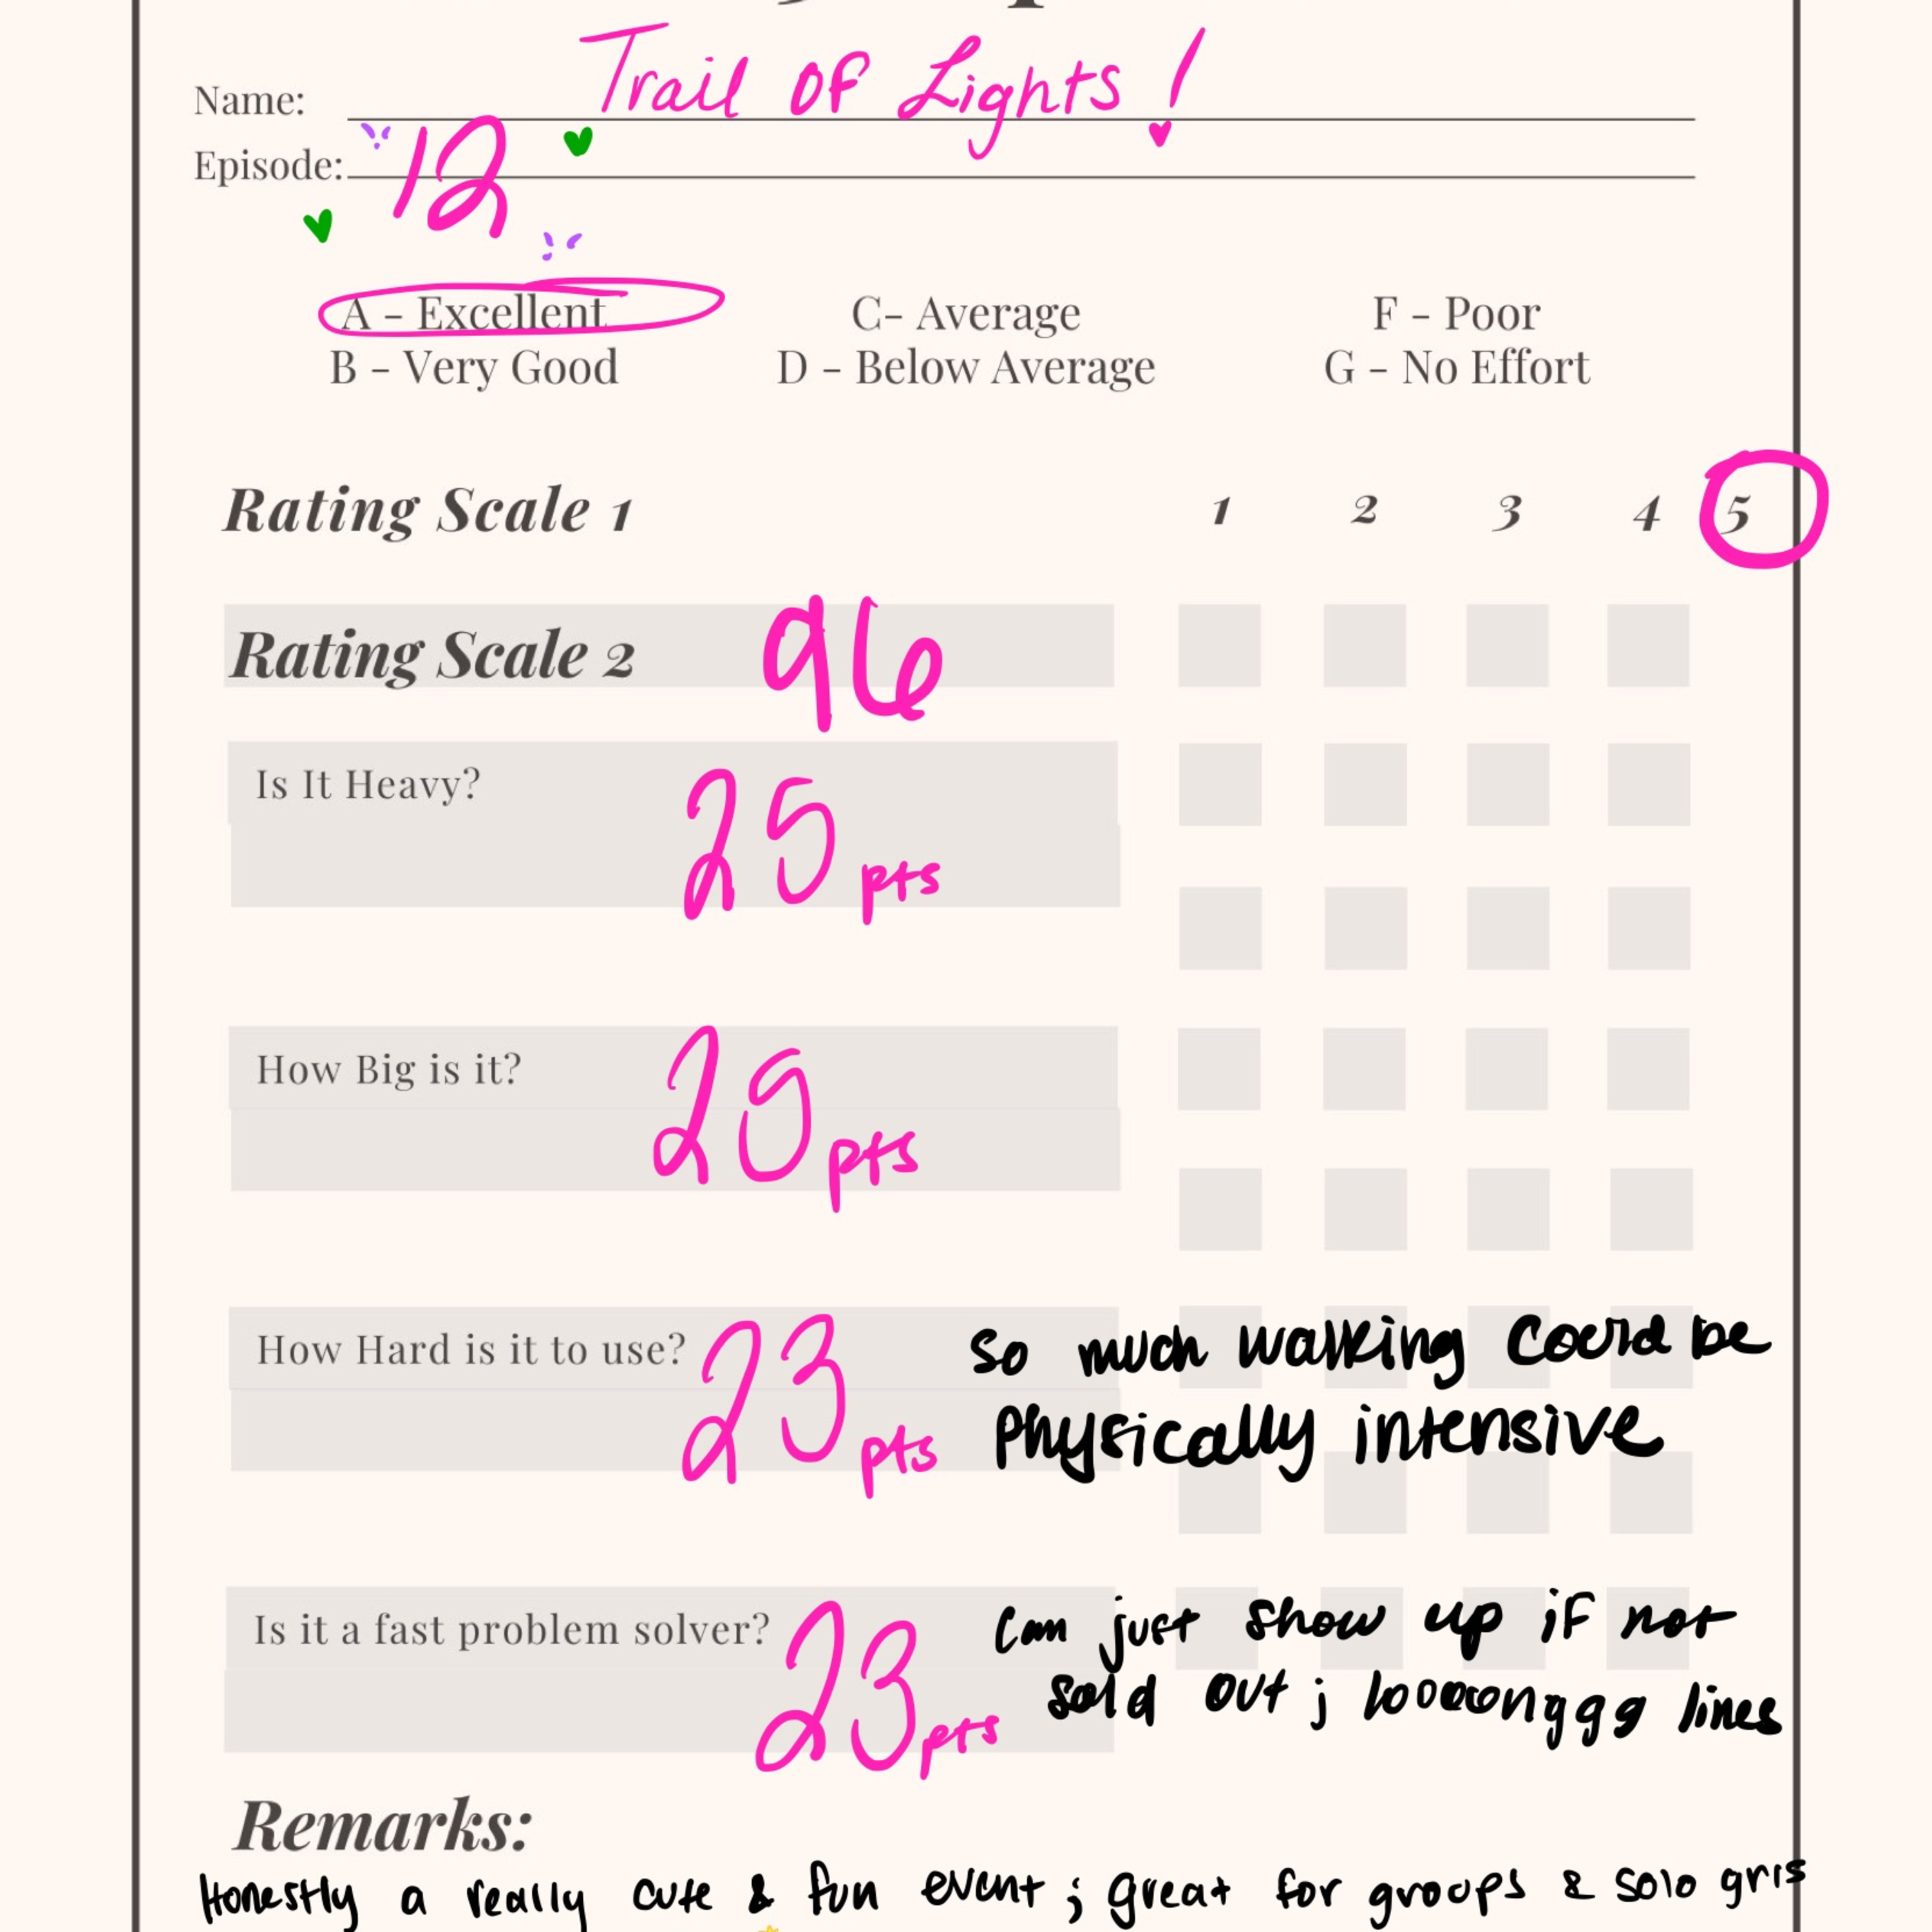 Trail OF Lights!
Name:
Episode: 12
A - Excellent C- Average F - Poor
B - Very Good D - Below Average G - No Effort
Rating Scale 1 1 2 3 4 5
Rating Scale 2 96
Is It Heavy?
25 pts
How Big is it?
25 pts
How Hard is it to use? 23 pts
so much walking Could be
Physically intensive
Is it a fast problem solver? 23 pts
Can just show up if not
sold out; looooonggg lines
Remarks:
Honestly a really cute & fun event; great for groups & solo